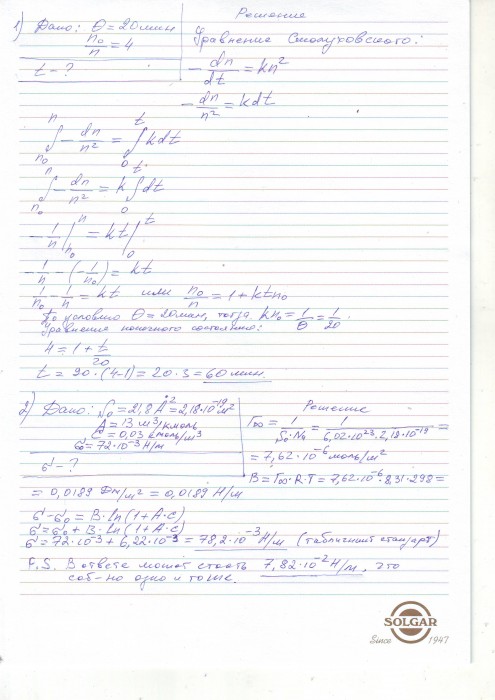 Решение
1) Дано: θ = 20 мин
n₀/n = 4
t - ?
Уравнение Смолуховского:
-dn/dt = kn²
-dn/n² = kdt
∫ₙ₀ⁿ -dn/n² = ∫₀ᵗ kdt
∫ₙ₀ⁿ -dn/n² = k∫₀ᵗ dt
-1/n |ₙ₀ⁿ = kt |₀ᵗ
-1/n - (-1/n₀) = kt
1/n₀ - 1/n = kt или n₀/n = 1 + ktn₀
По условию θ = 20 мин, тогда kn₀ = 1/θ = 1/20.
Уравнение конечного состояния:
4 = 1 + t/20
t = 20·(4-1) = 20·3 = 60 мин
2) Дано: S₀ = 21,8 Å² = 2,18·10⁻¹⁹ м²
A = 13 м³/кмоль
C = 0,03 кмоль/м³
σ₀ = 72·10⁻³ Н/м
σ - ?
Решение
Г∞ = 1/(S₀·N₀) = 1/(6,02·10²³·2,18·10⁻¹⁹) =
= 7,62·10⁻⁶ моль/м²
B = Г∞·R·T = 7,62·10⁻⁶·8,31·298 =
= 0,0189 Дж/м² = 0,0189 Н/м
σ - σ₀ = B·ln(1+A·c)
σ = σ₀ + B·ln(1+A·c)
σ = 72·10⁻³ + 6,22·10⁻³ = 78,2·10⁻³ Н/м (табличный стандарт)
P.S. В ответе может стоять 7,82·10⁻² Н/м, это
соб-но одно и то же.
SOLGAR
Since 1947